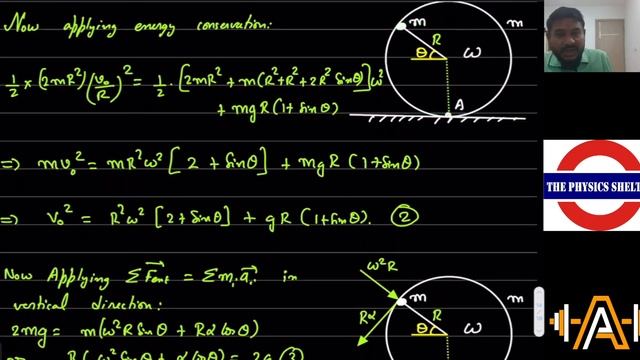 Now applying energy conservation:
½ × (2mR²)(v₀/R)² = ½ · [2mR² + m(R²+R²+2R² Sinθ)]ω²
+ mgR(1+Sinθ)
⇒ mv₀² = mR²ω² [2 + Sinθ] + mgR (1+Sinθ)
⇒ v₀² = R²ω² [2+Sinθ] + gR (1+Sinθ). ②
Now Applying ΣF⃗ext = Σmᵢa⃗ᵢ in
vertical direction:
2mg = m(ω²R Sinθ + Rα Cosθ)
R(ω² Sinθ + α Cosθ) = 2g ③
m
m
R
θ
ω
A
ω²R
m
m
Rα
R
θ
ω
THE PHYSICS SHELT
A